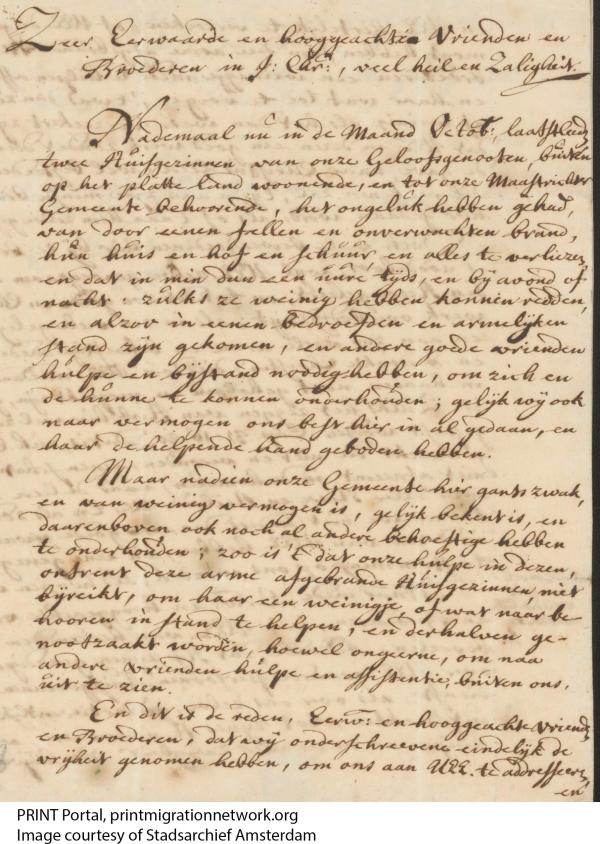 Zeer Eerwaarde en hooggeachte Vrienden en
Broederen in J: Chr:, veel heil en Zaligheit.
Nademaal nu in de Maand Octob: laatstleed:
twee Huisgezinnen van onze Geloofsgenooten, buiten
op het platte land woonende, en tot onze Maastrichter
Gemeente behoorende, het ongeluk hebben gehad,
van door eenen fellen en onverwachten brand,
hun huis en hof en schuur en alles te verliezen,
en dat in min dan een uure tyds, en by avond of
nacht: zulks ze weinig hebben konnen redden,
en alzoo in eenen bedroefden en armelyken
stand zyn gekomen, en andere goede vrienden
hulpe en bystand noodig hebben, om zich en
de hunne te konnen onderhouden; gelyk wy ook
naar vermogen ons best hier in al gedaan, en
haar de helpende hand geboden hebben.
Maar nadien onze Gemeente hier gants zwak,
en van weinig vermogen is, gelyk bekent is, en
daarenboven ook noch al andere behoeftige hebben
te onderhouden; zoo is 't dat onze hulpe in dezen,
ontrent deze arme afgebrande Huisgezinnen niet
byreikt, om haar een weinigje, of wat naar be
hooren in stand te helpen, en derhalven ge-
nootzaakt worden, hoewel ongeerne, om naa
andere vrienden hulpe en assistentie, buiten ons,
uit te zien.
En dit is de reden, Eerw: en hooggeachte vriend:
en Broederen, dat wy onderschreevene eindelyk de
vryheit genomen hebben, om ons aan UEE. te addresseeren,
en
PRINT Portal, printmigrationnetwork.org
Image courtesy of Stadsarchief Amsterdam